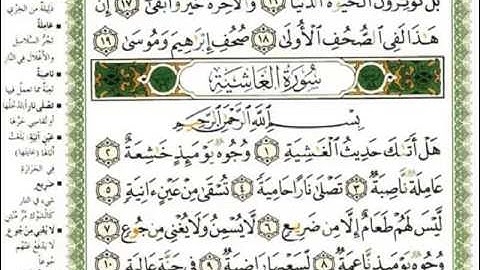 بَلْ تُؤْثِرُونَ الْحَيَاةَ الدُّنْيَا ١٦ وَالْآخِرَةُ خَيْرٌ وَأَبْقَى ١٧ إِنَّ
هَٰذَا لَفِي الصُّحُفِ الْأُولَى ١٨ صُحُفِ إِبْرَاهِيمَ وَمُوسَى ١٩
سُورَةُ الْغَاشِيَةِ
بِسْمِ اللَّهِ الرَّحْمَٰنِ الرَّحِيمِ
هَلْ أَتَاكَ حَدِيثُ الْغَاشِيَةِ ١ وُجُوهٌ يَوْمَئِذٍ خَاشِعَةٌ ٢
عَامِلَةٌ نَاصِبَةٌ ٣ تَصْلَى نَارًا حَامِيَةً ٤ تُسْقَى مِنْ عَيْنٍ آنِيَةٍ ٥
لَيْسَ لَهُمْ طَعَامٌ إِلَّا مِنْ ضَرِيعٍ ٦ لَا يُسْمِنُ وَلَا يُغْنِي مِنْ جُوعٍ ٧
وُجُوهٌ يَوْمَئِذٍ نَاعِمَةٌ ٨ لِسَعْيِهَا رَاضِيَةٌ ٩ فِي جَنَّةٍ عَالِيَةٍ ١٠
عاملة
ناصبة
تصلى نارا
عين آنية
ضريع
لا يغني من جوع